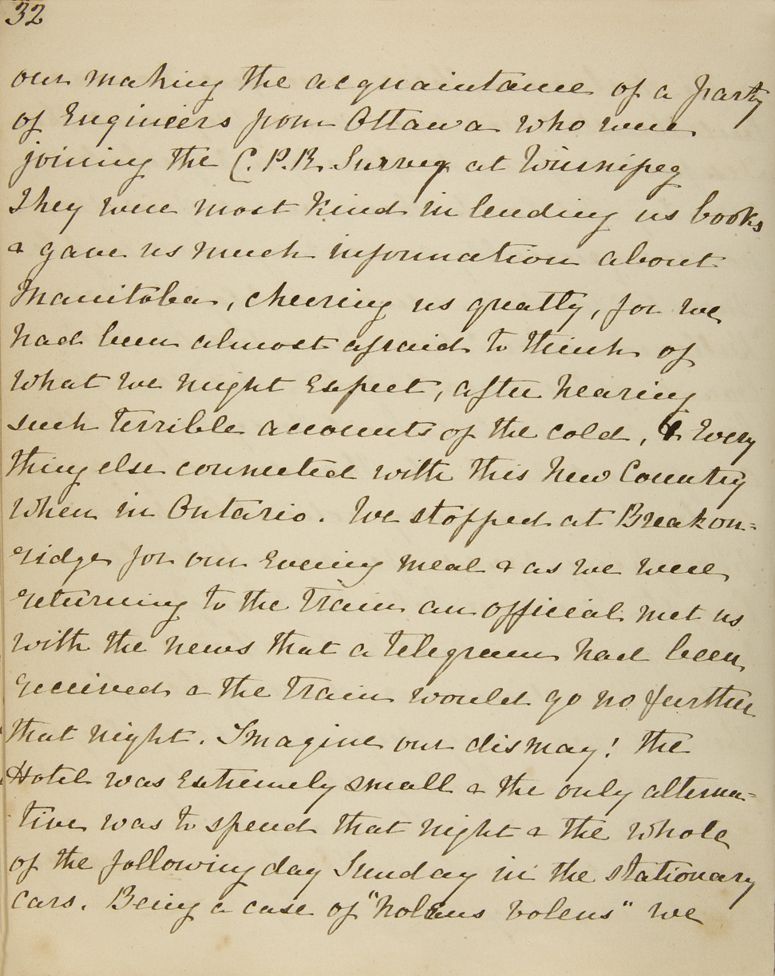 32
our making the acquaintance of a party
of Engineers from Ottawa who were
joining the C.P.R. Survey at Winnipeg
They were most kind in lending us books
& gave us much information about
Manitoba, cheering us greatly, for we
had been almost afraid to think of
what we might expect, after hearing
such terrible accounts of the cold, & every
thing else connected with this New Country
when in Ontario. We stopped at Breakon=
ridge for our Evening meal & as we were
returning to the Train an official met us
with the news that a Telegram had been
received & the Train would go no further
that night. Imagine our dismay! The
Hotel was extremely small & the only alterna=
tive was to spend that night & the whole
of the following day Sunday in the stationary
cars. Being a case of "nolens volens" we